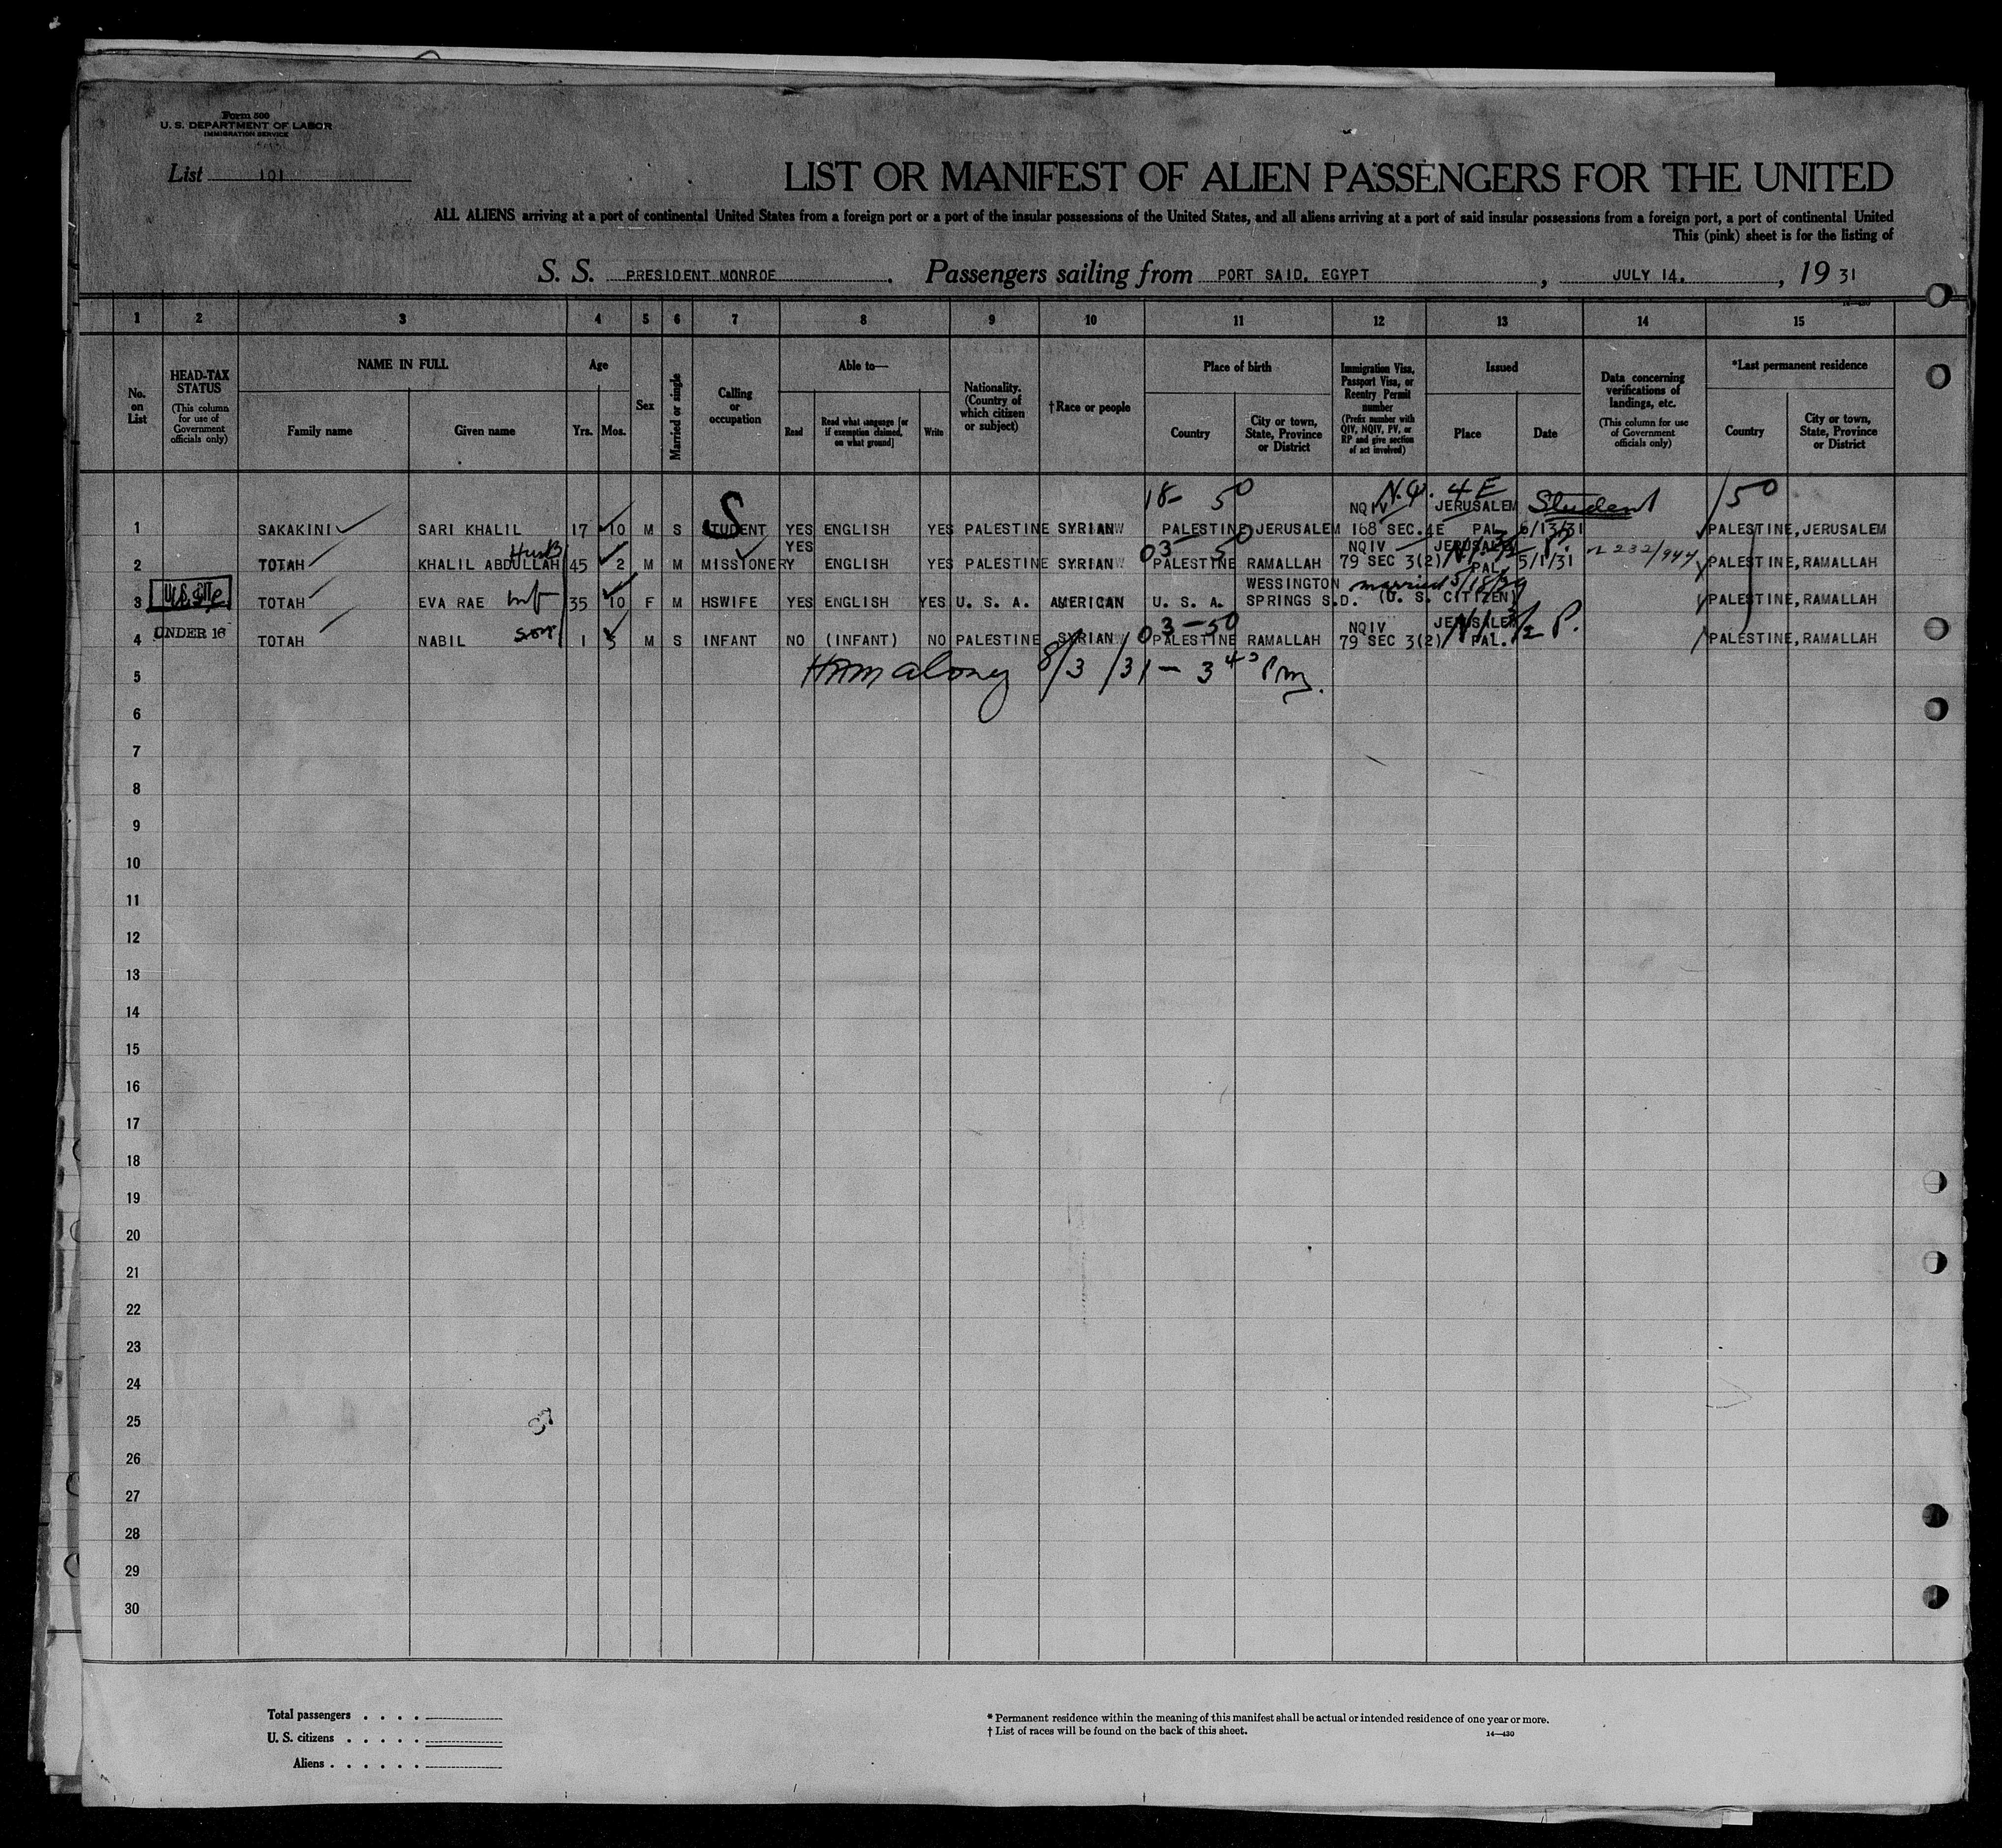 Form 500
U. S. DEPARTMENT OF LABOR
IMMIGRATION SERVICE
List 101
LIST OR MANIFEST OF ALIEN PASSENGERS FOR THE UNITED
ALL ALIENS arriving at a port of continental United States from a foreign port or a port of the insular possessions of the United States, and all aliens arriving at a port of said insular possessions from a foreign port, a port of continental United
This (pink) sheet is for the listing of
S. S. PRESIDENT MONROE. Passengers sailing from PORT SAID, EGYPT, JULY 14, 1931
14—430
1 2 3 4 5 6 7 8 9 10 11 12 13 14 15
No. on List
HEAD-TAX STATUS (This column for use of Government officials only)
NAME IN FULL
Family name Given name
Age
Yrs. Mos.
Sex
Married or single
Calling or occupation
Able to—
Read
Read what language [or if exemption claimed, on what ground]
Write
Nationality. (Country of which citizen or subject)
†Race or people
Place of birth
Country
City or town, State, Province or District
Immigration Visa, Passport Visa, or Reentry Permit number (Prefix number with QIV, NQIV, PV, or RP and give section of act involved)
Issued
Place Date
Data concerning verifications of landings, etc. (This column for use of Government officials only)
*Last permanent residence
Country
City or town, State, Province or District
18— 50 N.Q. 4E Student 150
1 SAKAKINI SARI KHALIL 17 10 M S STUDENT YES ENGLISH YES PALESTINE SYRIAN PALESTINE JERUSALEM NQIV 168 SEC. 4E JERUSALEM PAL. 6/13/31 PALESTINE, JERUSALEM
03— 50
2 TOTAH KHALIL ABDULLAH Husb 45 2 M M MISSIONERY YES ENGLISH YES PALESTINE SYRIAN PALESTINE RAMALLAH NQIV 79 SEC 3(2) JERUSALEM PAL. 5/1/31 PALESTINE, RAMALLAH
U.S. CIT.
3 TOTAH EVA RAE wf 35 10 F M HSWIFE YES ENGLISH YES U. S. A. AMERICAN U. S. A. WESSINGTON SPRINGS S.D. married (U. S. CITIZEN) PALESTINE, RAMALLAH
03—50
4 UNDER 16 TOTAH NABIL son 1 5 M S INFANT NO (INFANT) NO PALESTINE SYRIAN PALESTINE RAMALLAH NQIV 79 SEC 3(2) JERUSALEM PAL. PALESTINE, RAMALLAH
5 8/3/31— 3 45 Pm.
6
7
8
9
10
11
12
13
14
15
16
17
18
19
20
21
22
23
24
25
26
27
28
29
30
Total passengers . . . .
U. S. citizens . . . . .
Aliens . . . . . .
* Permanent residence within the meaning of this manifest shall be actual or intended residence of one year or more.
† List of races will be found on the back of this sheet.
14—430